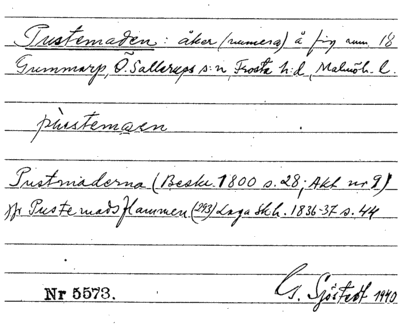 Pustemaden: åker (numera) å fig num 18
Gummarp, Ö. Sallerups s:n, Frosta h:d, Malmöh. l.
pùstemaen
Pustmaderna (Beskr. 1800 s. 28; Akt nr 9)
jfr Pustemadsflammen (293) Laga Sk.h. 1836-37 s. 44
Nr 5573.
G. Sjöstedt 1940